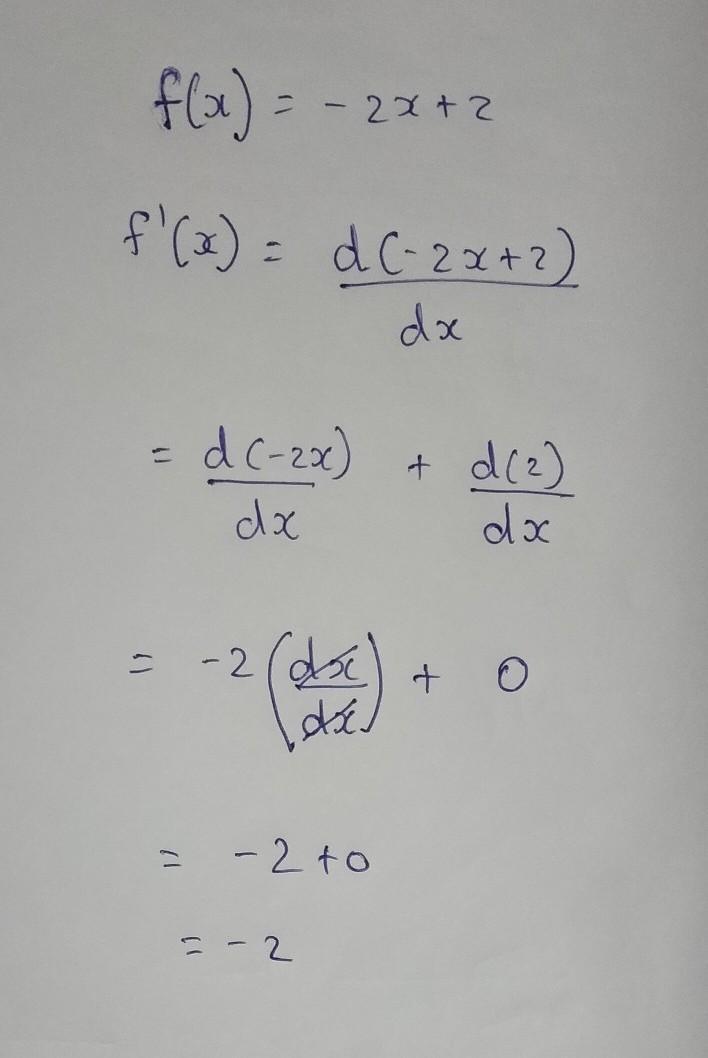 f(x) = -2x+2
f'(x) = d(-2x+2)
dx
= d(-2x) + d(2)
dx dx
= -2 (dx) + 0
dx
= -2+0
= -2